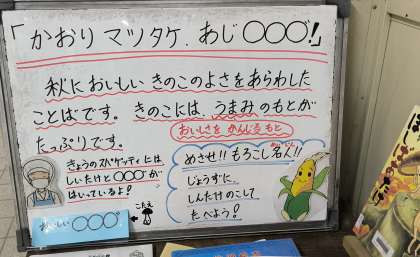 「かおり マツタケ、あじ 〇〇〇〇!」
秋に おいしい きのこの よさを あらわした
ことばです。きのこには、うまみ の もとが
たっぷりです。
おいしさを かんじる もと
きょうの スパゲッティには
しいたけと 〇〇〇〇が
はいっているよ!
おいしい 〇〇〇〇
こたえ
めざせ!! もろこし名人!!
じょうずに、
しんだけ のこして
たべよう!